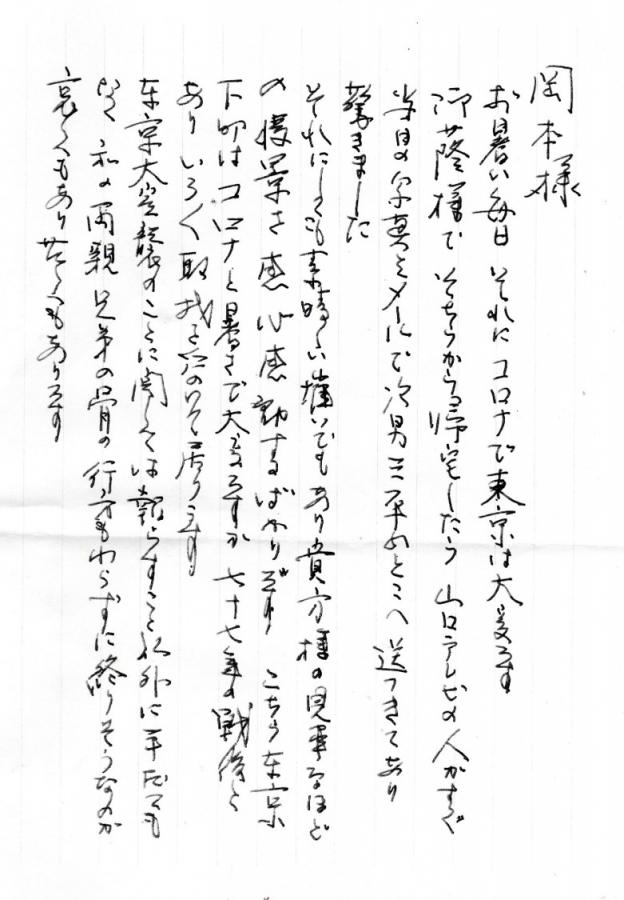 岡本様
お暑い毎日 それにコロナで東京は大変です
御蔭様で そちらから帰宅したら 山口テレビの人がすぐ
当日の写真をメールで次男三平のところへ送ってきてあり
驚きました
それにしても素晴しい催いでもあり貴方様の見事なほど
の 情景さ 感心感動するばかりです こちら東京
下町はコロナと暑さで大変ですが 七十七年の戦後と
あり いろいろ取材を受けて居ります
東京大空襲のことに関しては 報らすこと以外に年なくても
私の両親 兄弟の骨の行方もわからずに終りそうなのが
哀しくもあり 苦しくもあります